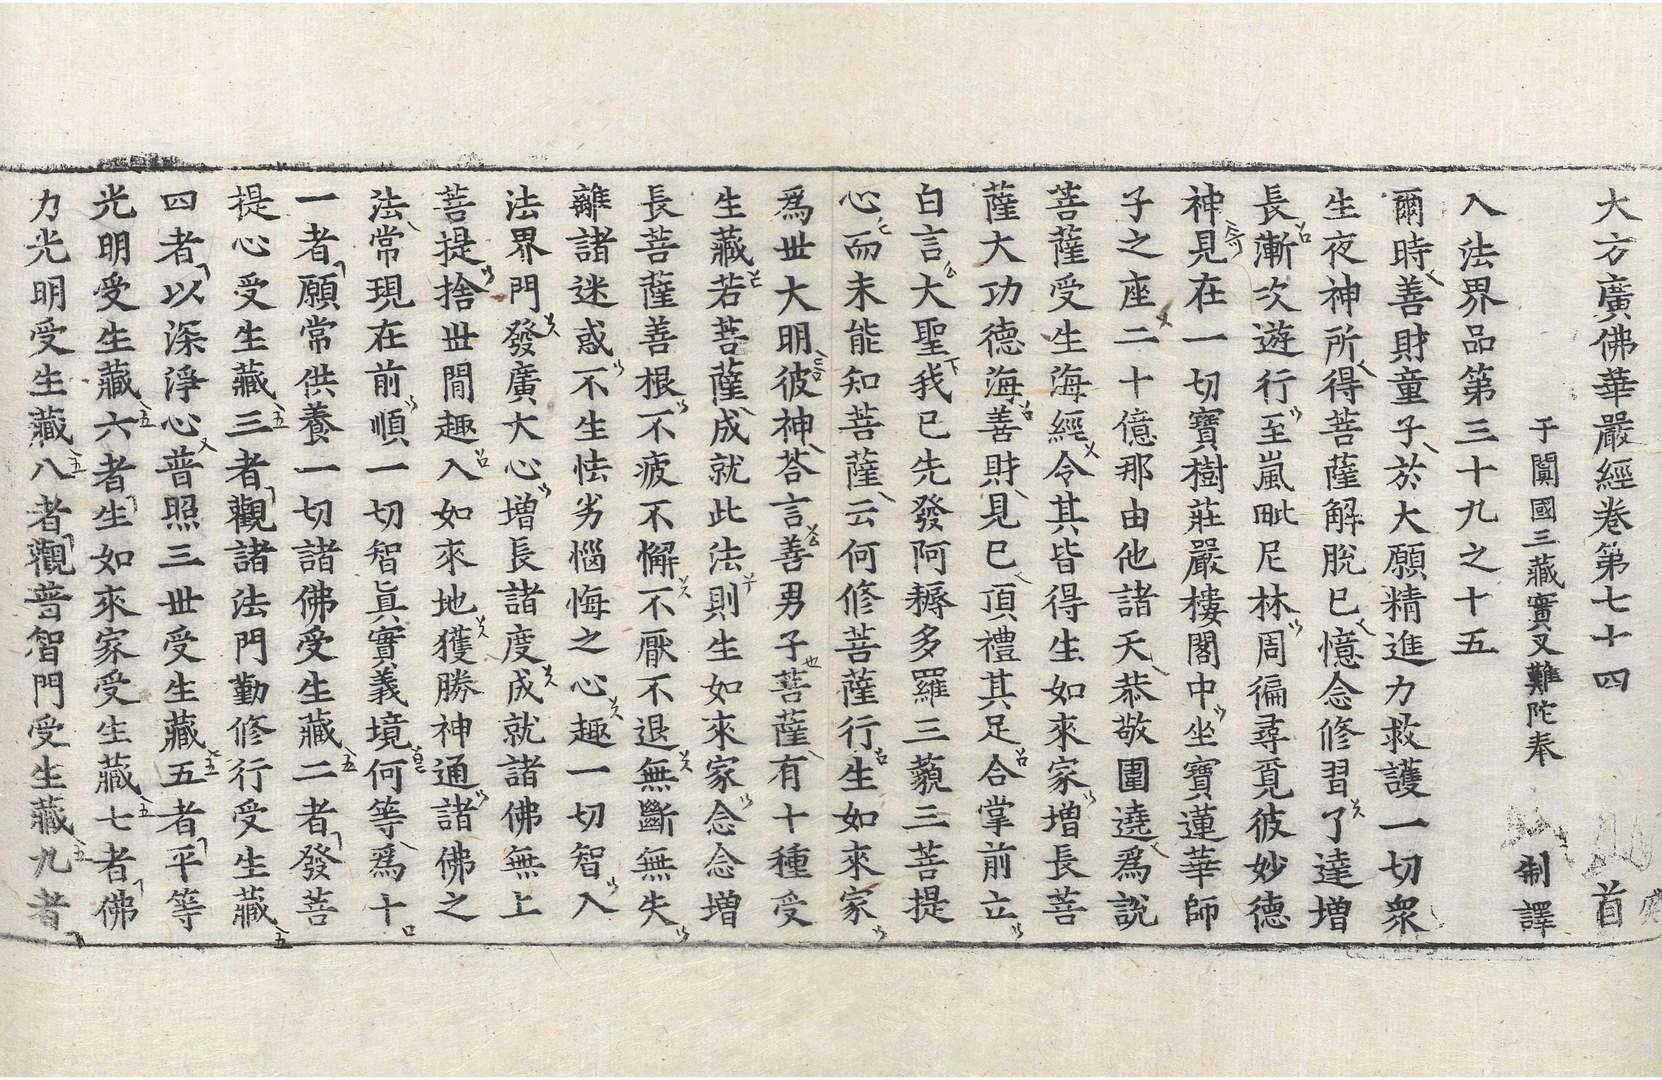 大方廣佛華嚴經卷第七十四 首
于闐國三藏實叉難陀奉 制譯
入法界品第三十九之十五
爾時善財童子於大願精進力救護一切衆
生夜神所得菩薩解脫已憶念修習了達增
長漸次遊行至嵐毗尼林周徧尋覓彼妙德
神見在一切寶樹莊嚴樓閣中坐寶蓮華師
子之座二十億那由他諸天恭敬圍遶爲說
菩薩受生海經令其皆得生如來家增長菩
薩大功德海善財見已頂禮其足合掌前立
白言大聖我已先發阿耨多羅三藐三菩提
心而未能知菩薩云何修菩薩行生如來家
爲世大明彼神荅言善男子菩薩有十種受
生藏若菩薩成就此法則生如來家念念增
長菩薩善根不疲不懈不厭不退無斷無失
離諸迷惑不生怯劣惱悔之心趣一切智入
法界門發廣大心增長諸度成就諸佛無上
菩提捨世間趣入如來地獲勝神通諸佛之
法常現在前順一切智眞實義境何等爲十
一者願常供養一切諸佛受生藏二者發菩
提心受生藏三者觀諸法門勤修行受生藏
四者以深淨心普照三世受生藏五者平等
光明受生藏六者生如來家受生藏七者佛
力光明受生藏八者觀普智門受生藏九者